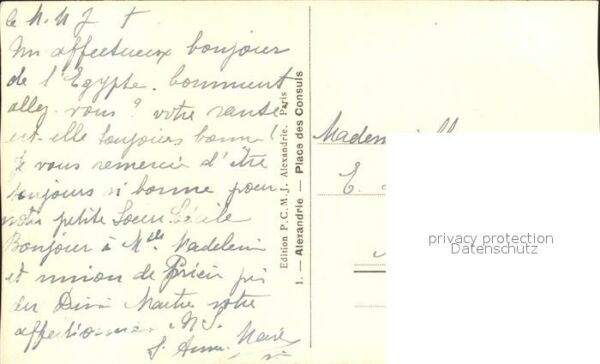 Un affectueux bonjour
de l'Egypte. Comment
allez-vous? votre santé
est-elle toujours bonne!
Je vous remercie d'être
toujours si bonne pour
notre petite Soeur Cécile
Bonjour à Mlle Madelein
et union de Prière
du Divin Maître votre
affectionnée
S. Anne Marie
Edition P. C. M. J., Alexandrie. Paris
1. — Alexandrie — Place des Consuls
E.
privacy protection
Datenschutz